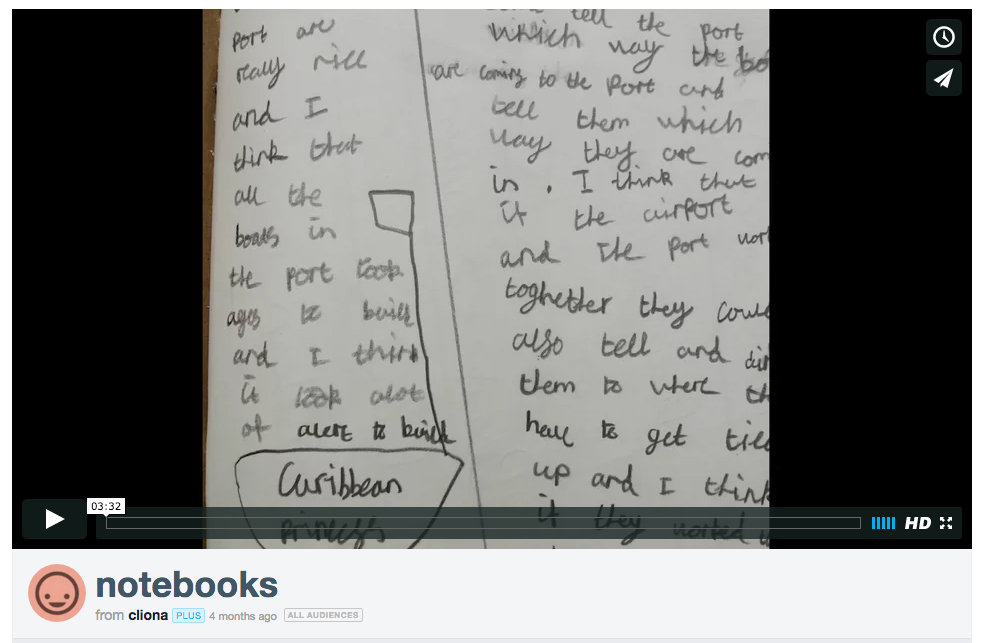 port are
really nice
and I
think that
all the
boats in
the port took
ages to built
and I think
it took alot
of alert to built
Caribbean
Princess
tell the port
which way the bo
are coming to the Port and
tell them which
way they are com
in . I think that
if the airport
and the port wor
toghether they could
also tell and dir
them to where th
have to get tied
up and I think
if they worked
03:32
HD
notebooks
from cliona PLUS 4 months ago ALL AUDIENCES